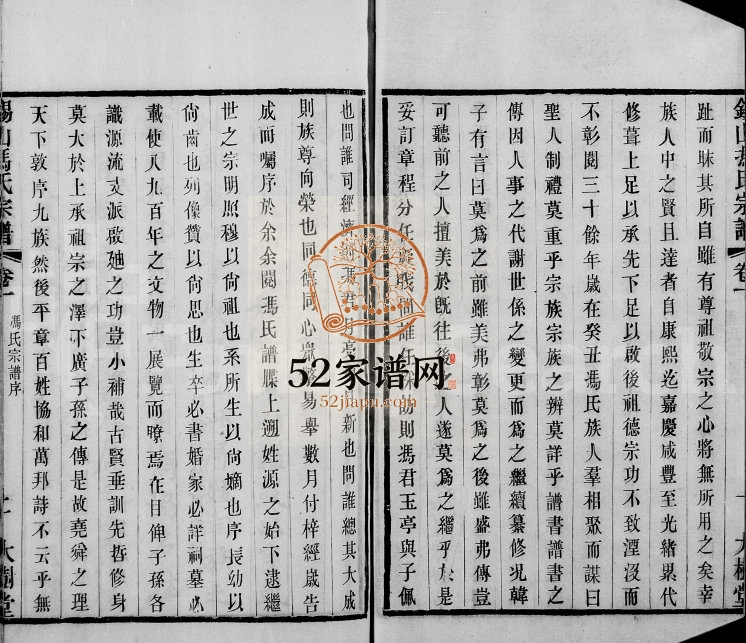 錫山馮氏宗譜 卷一
大樹堂
趾而昧其所自雖有尊祖敬宗之心將無所用之矣幸
族人中之賢且達者自康熙迄嘉慶咸豐至光緒累代
修葺上足以承先下足以啟後祖德宗功不致湮沒而
不彰閱三十餘年歲在癸丑馮氏族人羣相聚而謀曰
聖人制禮莫重乎宗族宗族之辨莫詳乎譜書譜書之
傳因人事之代謝世係之變更而為之繼續纂修況韓
子有言曰莫為之前雖美弗彰莫為之後雖盛弗傳豈
可聽前之人擅美於旣往後之人遂莫為之繼乎於是
妥訂章程分任 則馮君玉亭與子佩
也問誰司經 馮君 新也問誰總其大成
則族尊向榮也同德同心 易舉數月付梓經歲告
成而囑序於余余閱馮氏譜牒上遡姓源之始下逮繼
世之宗明照穆以尙祖也系所生以尙嫡也序長幼以
尙齒也列像贊以尙思也生卒必書婚家必詳祠墓必
載使八九百年之文物一展覽而瞭焉在目俾子孫各
識源流支派啟廸之功豈小補哉古賢垂訓先哲修身
莫大於上承祖宗之澤下廣子孫之傳是故堯舜之理
天下敦序九族然後平章百姓協和萬邦詩不云乎無
錫山馮氏宗譜 卷一 馮氏宗譜序
大樹堂
52家谱网
52jiapu.com